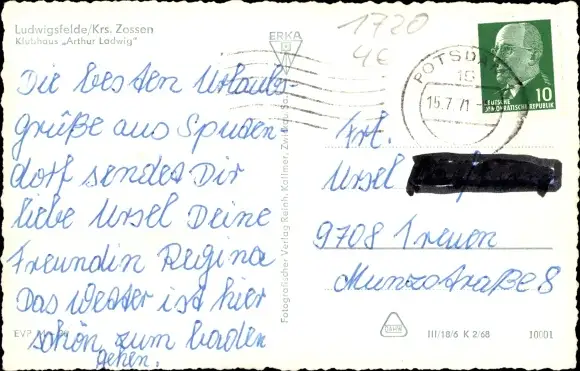 Ludwigsfelde/Krs. Zossen
Klubhaus „Arthur Ladwig"
ERKA
1720
4€
POTSDAM
15.7.71
10
DEUTSCHE
DEMOKRATISCHE REPUBLIK
Die besten Urlaubs-
grüße aus Sputen
dorf sendet Dir
liebe Ursel Deine
Freundin Regina
Das Wetter ist hier
schön zum baden
gehen.
Frl.
Ursel
9708 Treuen
Münzstraße 8
Fotografischer Verlag Reinh. Kallmer, Zwickau, Sa.
EVP
III/18/6 K 2/68
10001